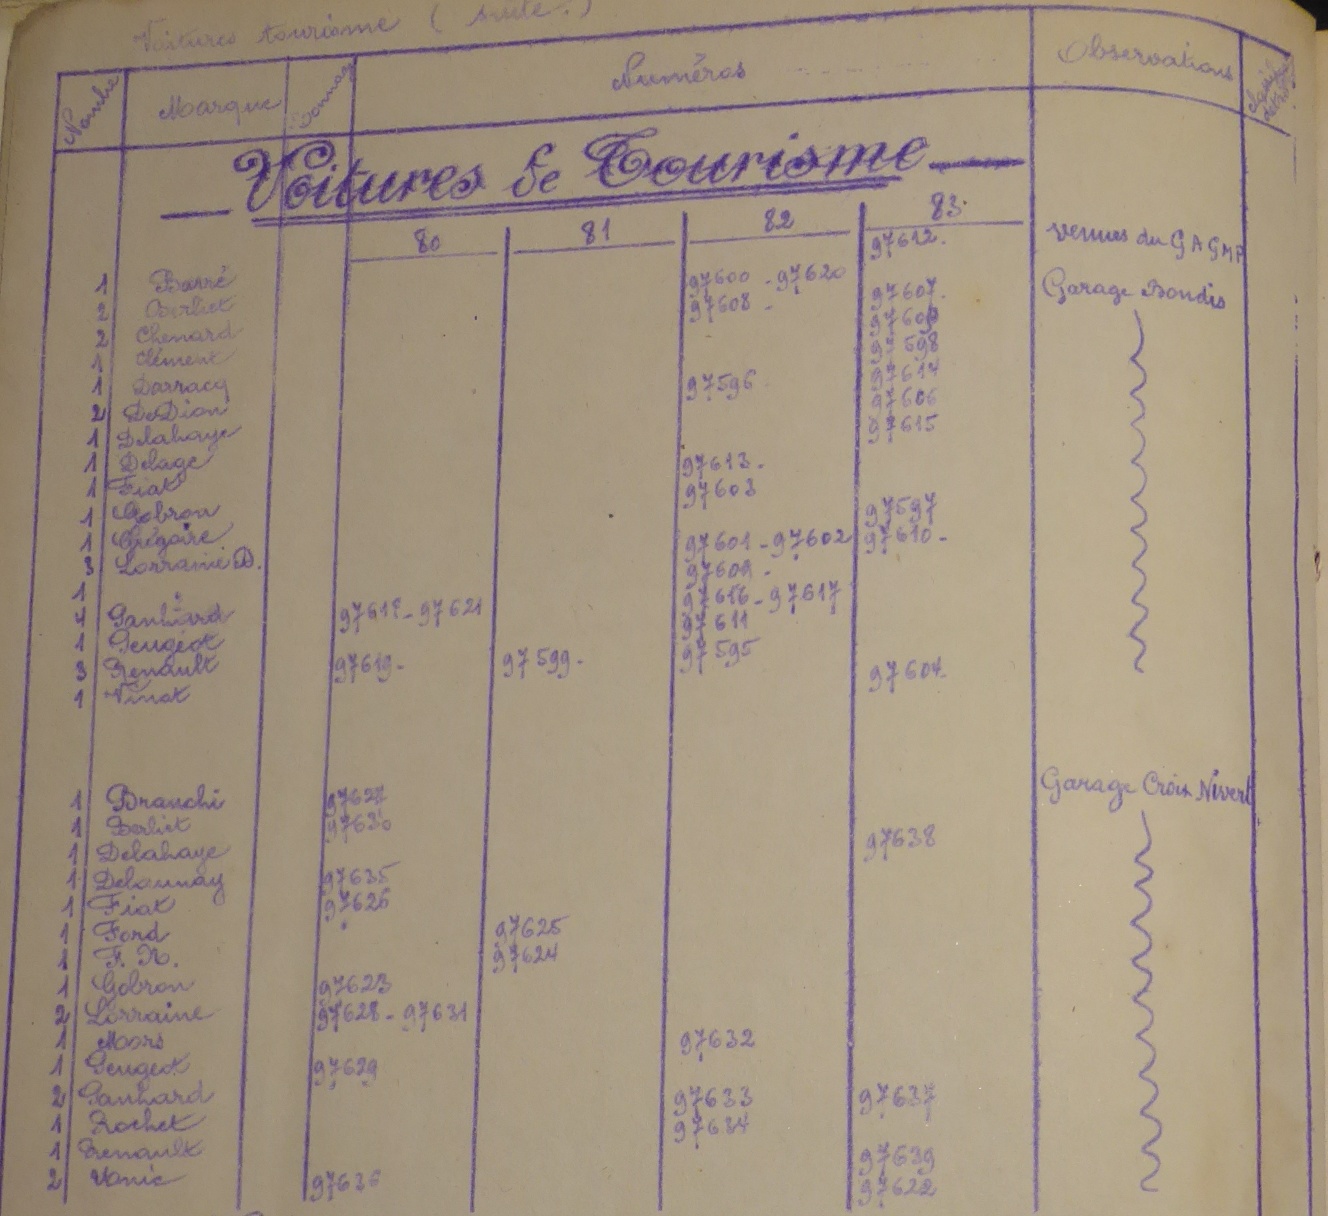 Voitures tourisme (suite.)
Nombre Marque Tonnage Numéros Observations
Voitures de Tourisme
80 81 82 83
97612. Venues du GAGMP
1 Barré 97600 - 97620 Garage Bondis
2 Berliet 97608 - 97607.
2 Chenard 97609
1 Clément 97598
1 Darracq 97596 97614
2 DeDion 97606
1 Delahaye 97615
1 Delage 97613.
1 Fiat 97603
1 Gobron 97597
1 Grégoire 97601 - 97602 97610 -
3 Lorraine D. 97609 -
1 " 97616 - 97617
4 Panhard 97618 - 97621 97611
1 Peugeot 97595
3 Renault 97619 - 97599 - 97604
1 Vinot
1 Branchi 97627 Garage Croix Nivert
1 Berliet 97630
1 Delahaye 97638
1 Delaunay 97635
1 Fiat 97626
1 Ford 97625
1 F. N. 97624
1 Gobron 97623
2 Lorraine 97628 - 97631
1 Mors 97632
1 Peugeot 97629
2 Panhard 97633 97637
1 Rochet 97634
1 Renault 97639
2 Unic 97636 97622